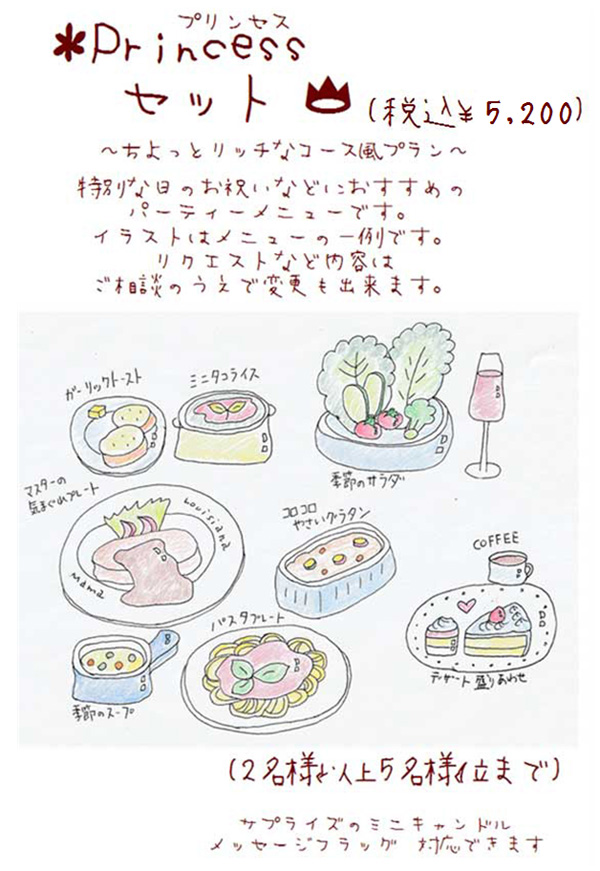 プリンセス
*Princess
セット (税込¥5,200)
～ちょっとリッチなコース風プラン～
特別な日のお祝いなどにおすすめの
パーティーメニューです。
イラストはメニューの一例です。
リクエストなど内容は
ご相談のうえで変更も出来ます。
ガーリックトースト
ミニタコライス
季節のサラダ
マスターの
気まぐれプレート
Louisiana
mama
コロコロ
やさいグラタン
COFFEE
パスタプレート
季節のスープ
デザート盛りあわせ
(2名様以上5名様位まで)
サプライズのミニキャンドル
メッセージフラッグ 対応できます